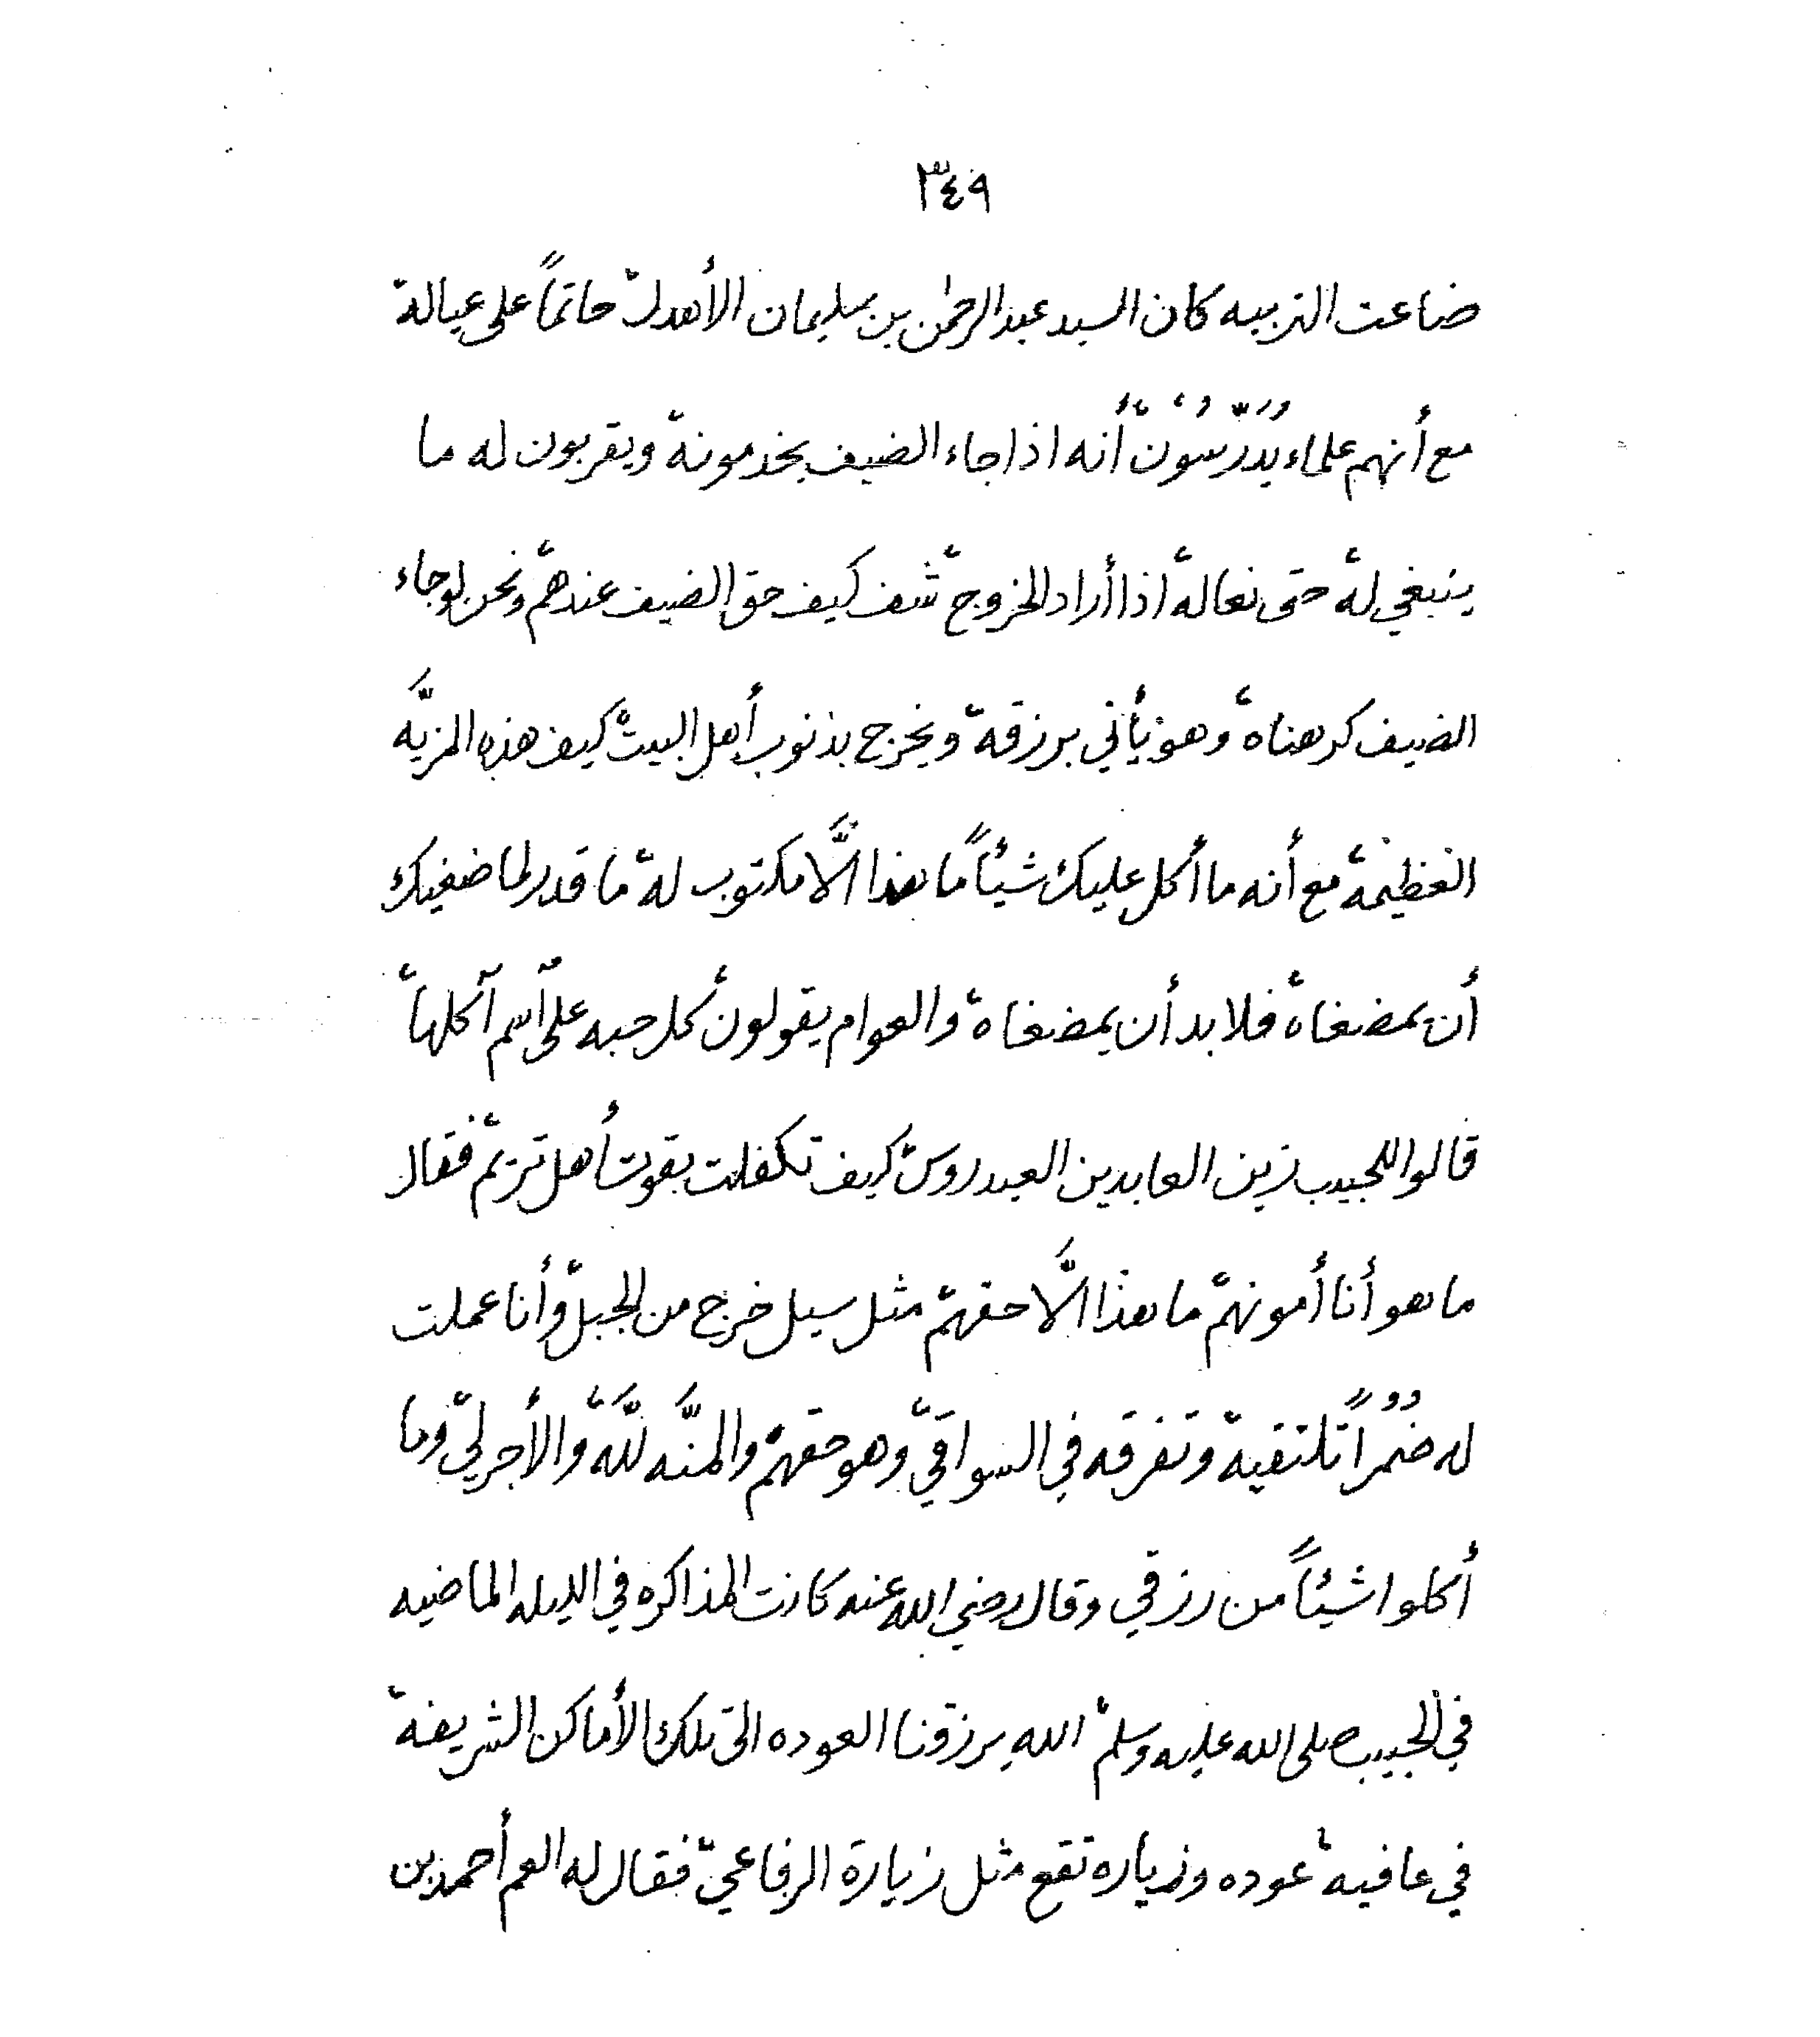 ٣٤٩
ضاعت التربيه كان السيد عبدالرحمن بن سليمان الأهدل، حاتماً على عياله،
مع أنهم علماء يُدَرِّسُون، أنه اذا جاء الضيف يخدمونه، ويقربون له ما
ينبغي له، حتى نعاله، اذا أراد الخروج، شف كيف حق الضيف عندهم، ونحن لوجاء
الضيف كرهناه، وهو يأتي برزقه، ويخرج بذنوب أهل البيت، كيف هذه المزيَّه
العظيمة، مع أنه ما أكل عليك شيئاً ما هذا الَّا مكتوب له، ما قدر لماضغيك
أن يمضغاه، فلابد أن يمضغاه، والعوام يقولون، كل حبه على آسم آكلها،
قالوا للحبيب زين العابدين العيدروس، كيف تكفلت بقوت أهل تريم، فقال
ما هو أنا أمونهم، ما هذا الَّا حقهم، مثل سيل خرج من الجبل، وأنا عملت
له ضُمُراً تلتقيه، وتفرقه في السواقي، وهو حقهم، والمنَّه للَّه، والأجر لي، وما
أكلوا شيئاً من رزقي وقال رضي الله عنه كانت المذاكره في الليله الماضيه
في الحبيب صلى الله عليه وسلم، الله يرزقنا العوده الى تلك الأماكن الشريفه،
في عافيه، عوده وزياره تقع مثل زيارة الرفاعي، فقال له العم أحمد بن